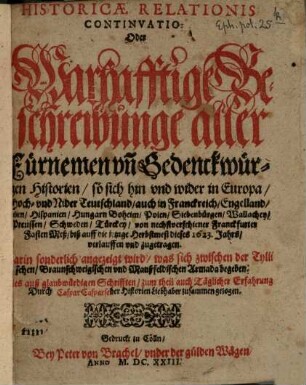 HISTORICÆ RELATIONIS
CONTINVATIO:
Oder
Eph. pol. 25
Warhafftige Be-
schreibunge aller
Fürnemen vñ Gedenckwür-
gen Historien / so sich hin vnd wider in Europa /
Hoch- vnd Nider Teutschland / auch in Franckreich / Engelland /
Hispanien / Hungarn Boheim / Polen / Siebenbürgen / Wallachey /
Preussen / Schweden / Türckey / von nechstverschiener Franckfurter
Fasten Meß / biß auff die jtzige Herbstmeß dieses 1623. Jahrs /
verlauffen vnd zugetragen.
sonderlich angezeigt wird / was sich zwischen der Tylli
schen / Braunschweigischen vnd Manßfeldischen Armada begeben.
auß glaubwirdigen Schrifften / zum theil auch Täglicher Erfahrung
Durch Caspar der Historien liebhaber zusammen gezogen.
Gedruckt in Cölln /
Bey Peter von Brachel / vnder der gülden Wagen
ANNO M. DC. XXIII.